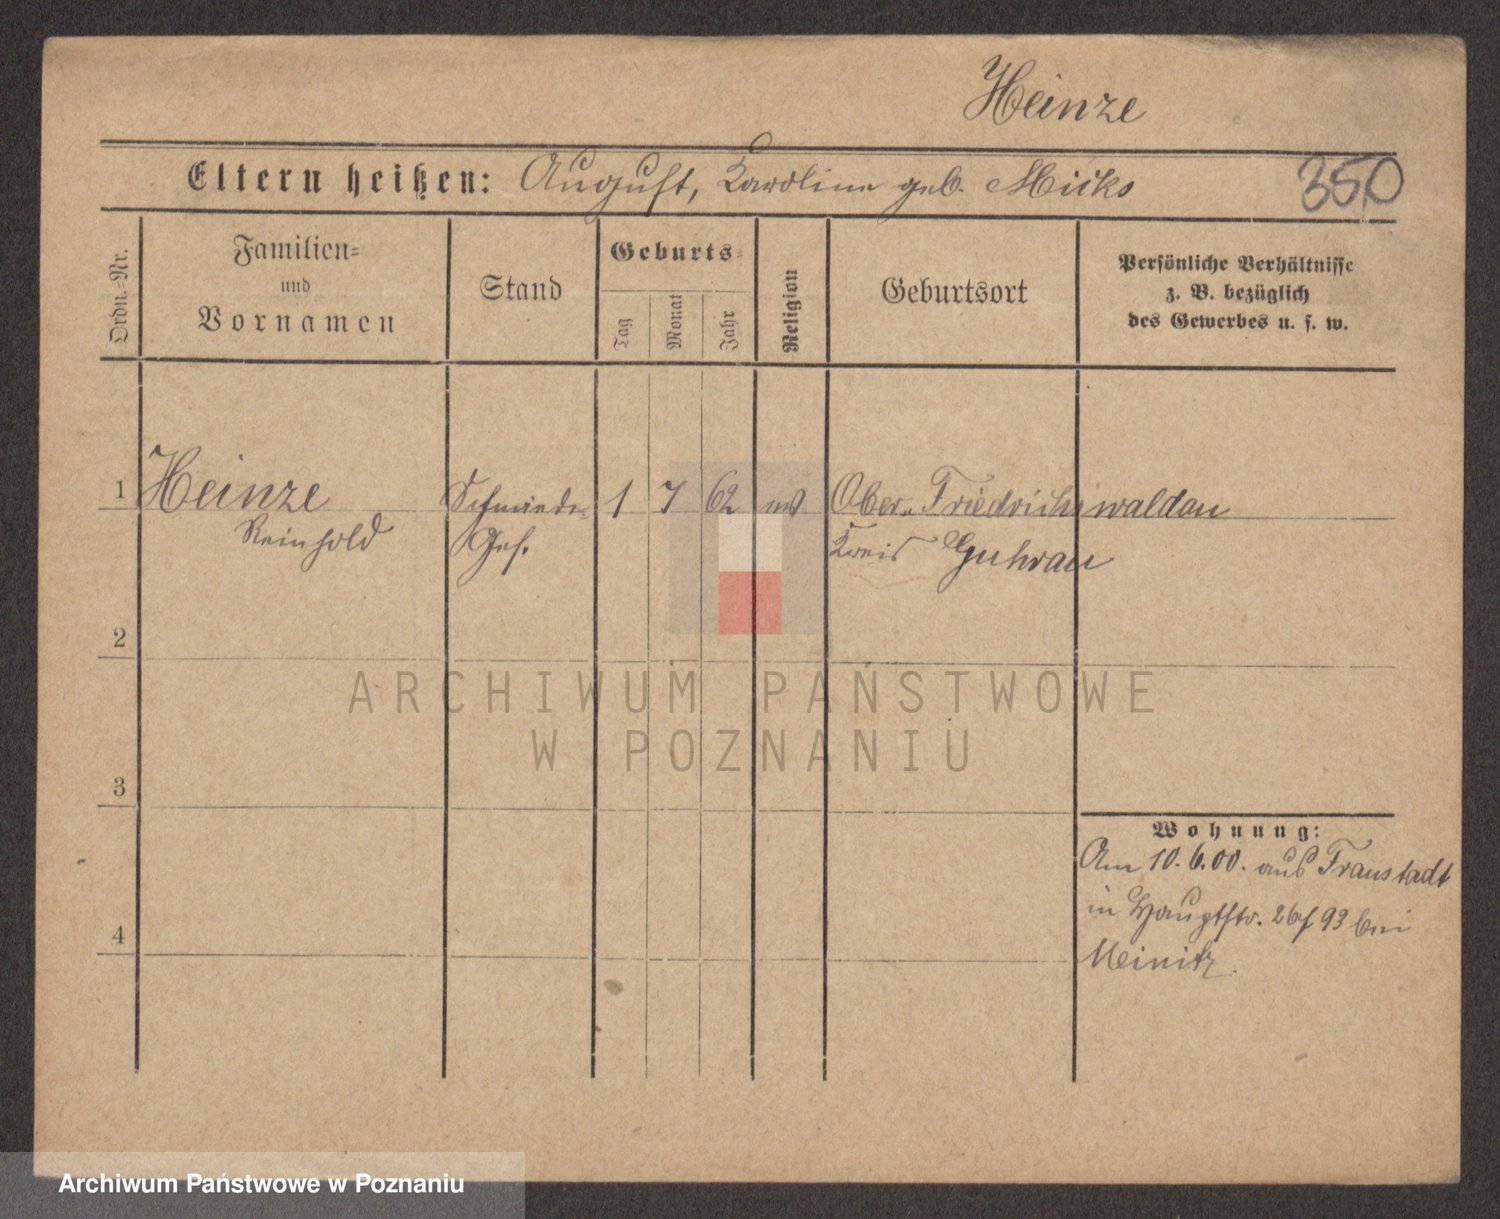 Heinze
Eltern heißen: August, Karoline geb. Micks
350
Ordn.-Nr.
Familien-
und
Vornamen
Stand
Geburts-
Tag
Monat
Jahr
Religion
Geburtsort
Persönliche Verhältnisse
z. B. bezüglich
des Gewerbes u. s. w.
1 Heinze Schmiede- 1 7 62 Ober-Friedrichswaldau
Reinhold Ges. Kreis Guhrau
2
3
4
Wohnung:
Am 10.6.00. aus Fraustadt
in Hauptstr. 93 bei
Meinitz.
ARCHIWUM PAŃSTWOWE
W POZNANIU
Archiwum Państwowe w Poznaniu